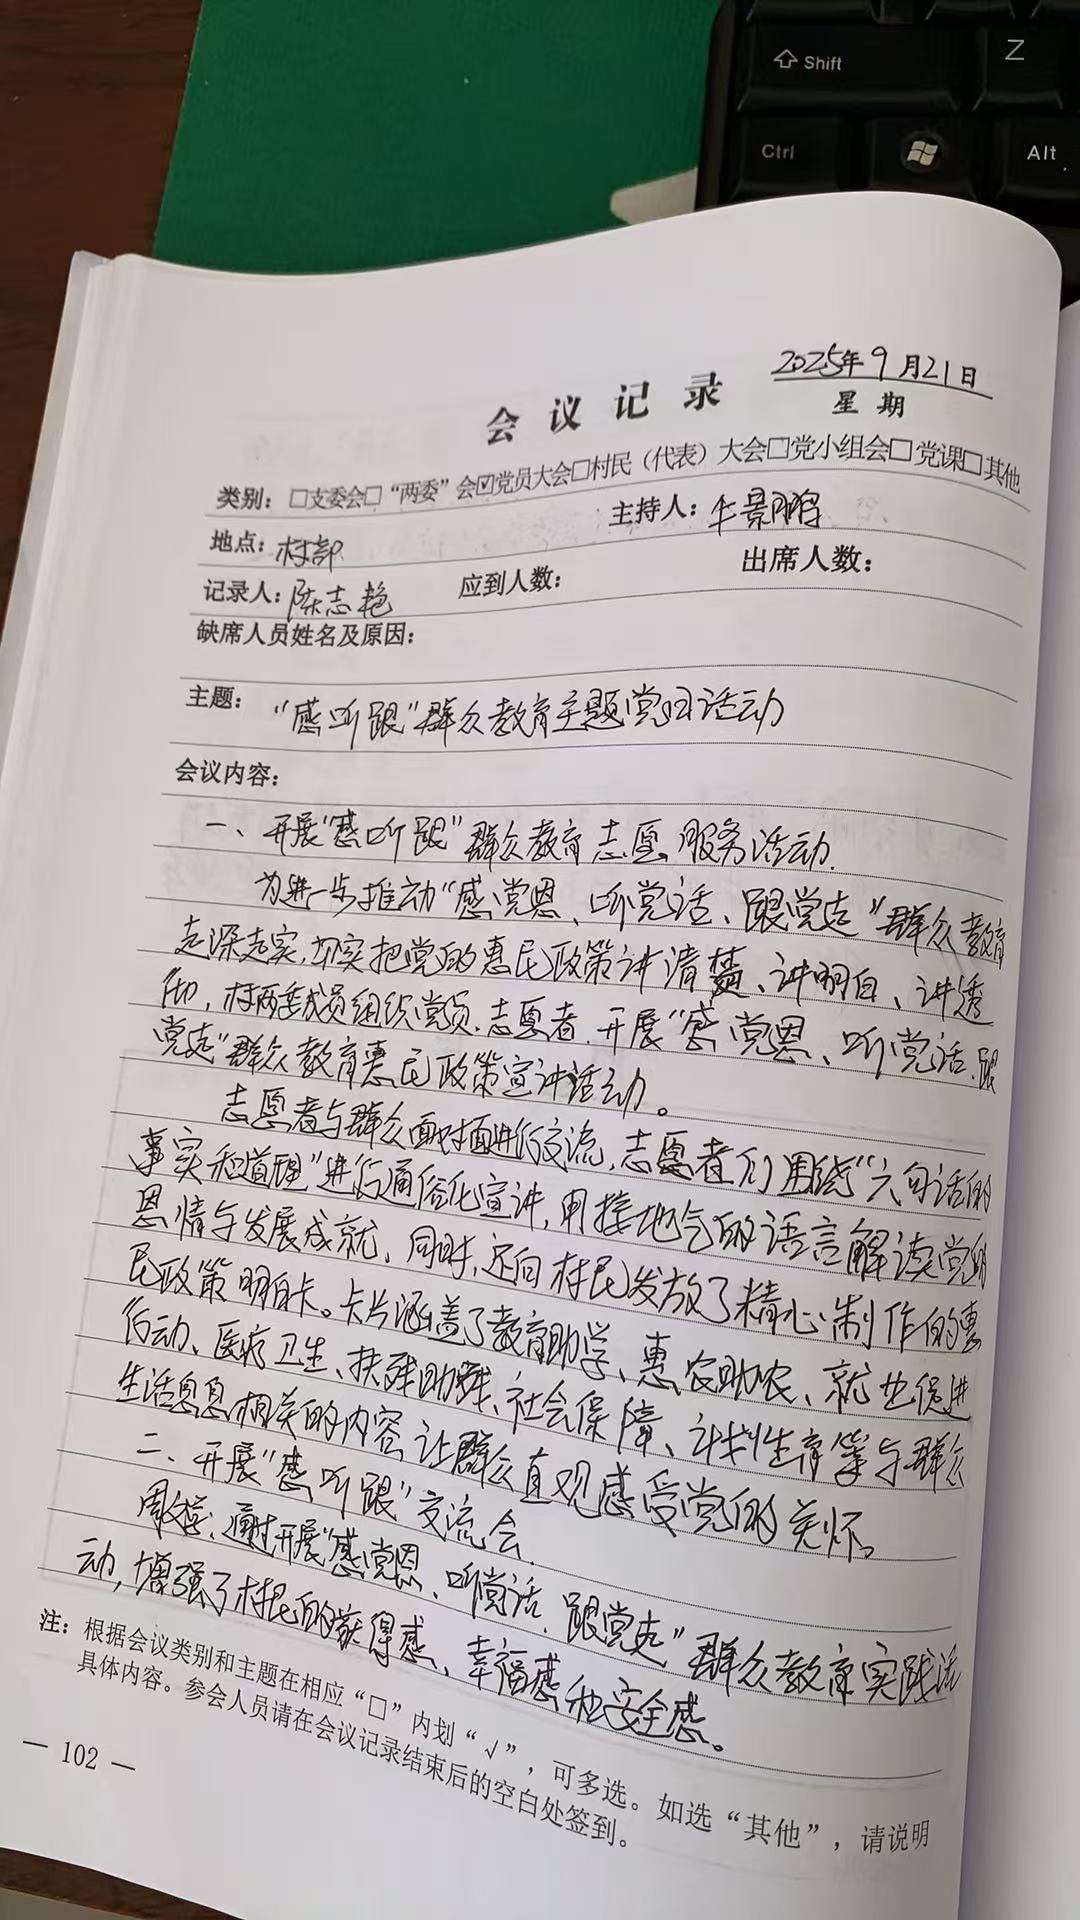 Shift
Z
Ctrl
Alt
2025年9月21日
会议记录
星期
类别：□支委会□“两委”会☑党员大会□村民（代表）大会□党小组会□党课□其他
地点：村部 主持人：牛景鹏
记录人：陈志艳 应到人数： 出席人数：
缺席人员姓名及原因：
主题：“感听跟”群众教育主题党日活动
会议内容：
一、开展“感听跟”群众教育志愿服务活动.
为进一步推动“感党恩、听党话、跟党走”群众教育
走深走实，切实把党的惠民政策讲清楚、讲明白、讲透
彻，村两委成员组织党员、志愿者开展“感党恩、听党话、跟
党走”群众教育惠民政策宣讲活动。
志愿者与群众面对面进行交流，志愿者们围绕“六句话的
事实和道理”进行通俗化宣讲，用接地气的语言解读党的
恩情与发展成就，同时，还向村民发放了精心制作的惠
民政策明白卡。卡片涵盖了教育助学、惠农助农、就业促进
行动、医疗卫生、扶残助残、社会保障、计划生育等与群众
生活息息相关的内容，让群众直观感受党的关怀。
二、开展“感听跟”交流会.
周：通过开展“感党恩、听党话、跟党走”群众教育实践活
动，增强了村民的获得感、幸福感和安全感。
注：根据会议类别和主题在相应“□”内划“√”，可多选。如选“其他”，请说明
具体内容。参会人员请在会议记录结束后的空白处签到。
— 102 —